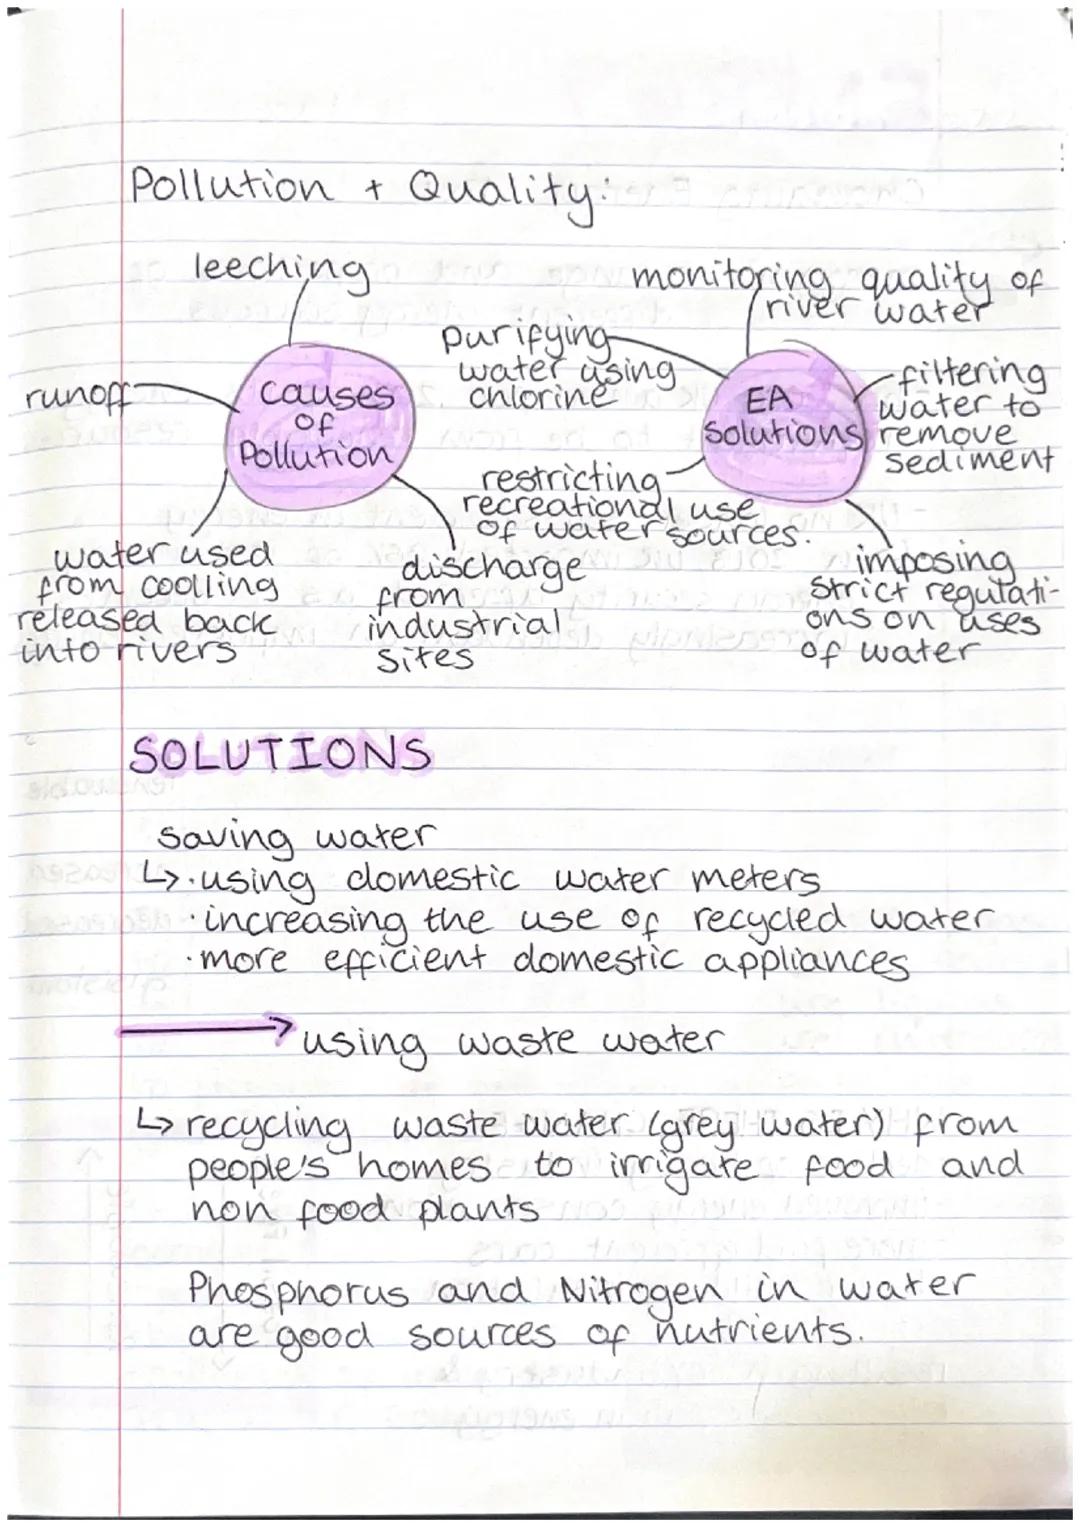 Pollution + Quality:
leeching
runoff
causes
of
Pollution
water used
from coolling
released back
into rivers
discharge
from
industrial
sites
monitoring quality of
river water
purifying
water using
chlorine
EA
solutions
filtering
water to
remove
sediment
restricting
recreational use
of water sources.
imposing
strict regulati-
ons on uses
of water
SOLUTIONS
saving water
↳ · using domestic water meters
· increasing the use of recycled water
· more efficient domestic appliances
→ using waste water
↳ recycling waste water (grey water) from
people's homes to irrigate food and
non food plants
Phosphorus and Nitrogen in water
are good sources of nutrients.